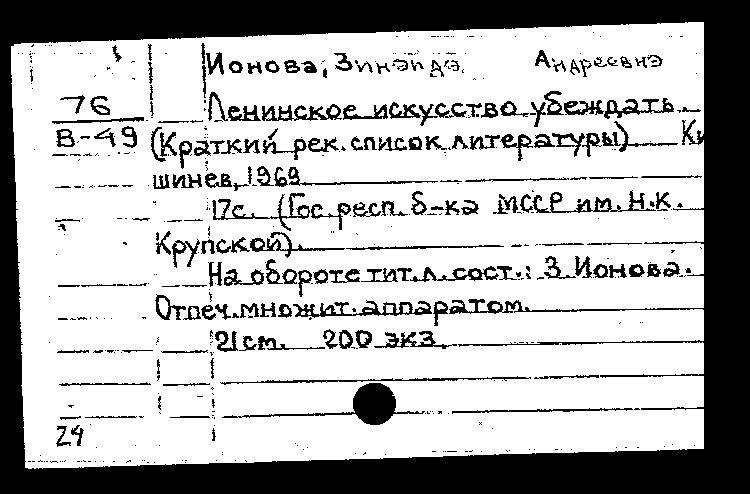 Ионова, Зинаида Андреевна
76
В-49
Ленинское искусство убеждать.
(Краткий рек. список литературы) Ки
шинев, 1969.
17с. (Гос. респ. б-ка МССР им. Н.К.
Крупской).
На обороте тит. л. сост.: З Ионова.
Отпеч. множит. аппаратом.
21 см. 200 экз.
24